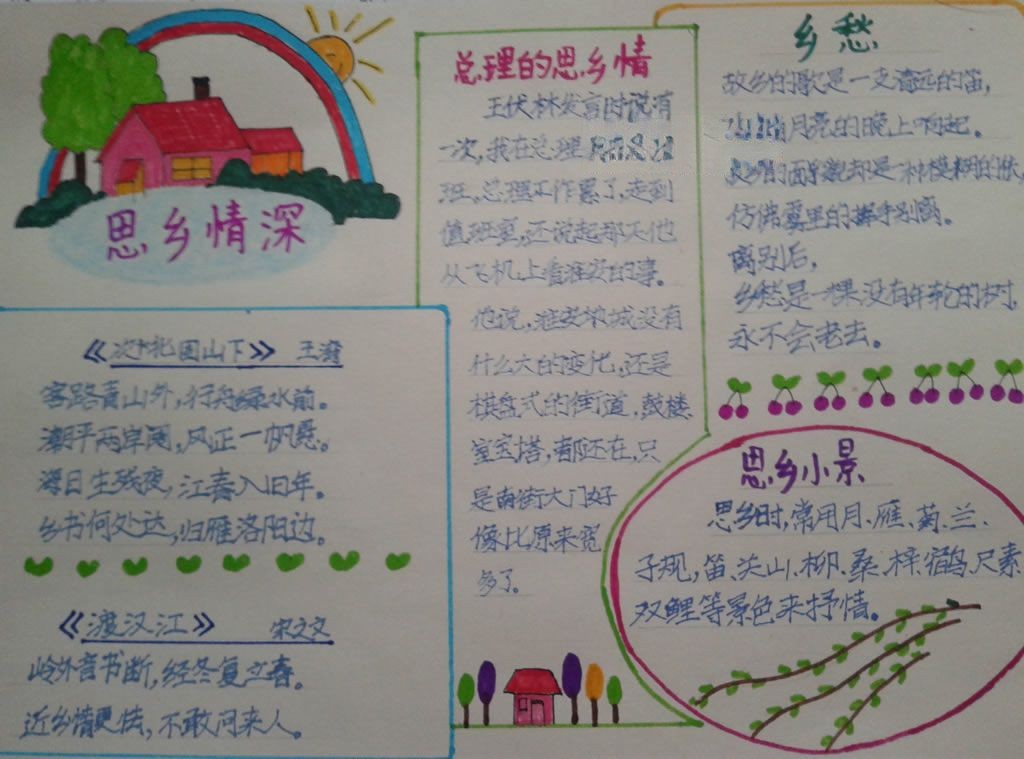 思乡情深
《次北固山下》 王湾
客路青山外,行舟绿水前。
潮平两岸阔,风正一帆悬。
海日生残夜,江春入旧年。
乡书何处达,归雁洛阳边。
《渡汉江》 宋之文
岭外音书断,经冬复立春。
近乡情更怯,不敢问来人。
总理的思乡情
王伏林发言时说有
一次,我在总理
班,总理工作累了,走到
值班室,还说起那天他
从飞机上看淮安的事。
他说,淮安城没有
什么大的变化,还是
棋盘式的街道,鼓楼
宝塔,都还在,只
是南街大门好
像比原来宽
多了。
乡愁
故乡的歌是一支清远的笛,
月亮的晚上响起。
乡的面貌却是一种模糊的
仿佛雾里的挥手别离。
离别后,
乡愁是一棵没有年轮的树,
永不会老去。
思乡小景
思乡时,常用月、雁、菊、兰、
子规,笛、关山、柳、桑、梓、宿鸟、尺素
双鲤等景色来抒情。